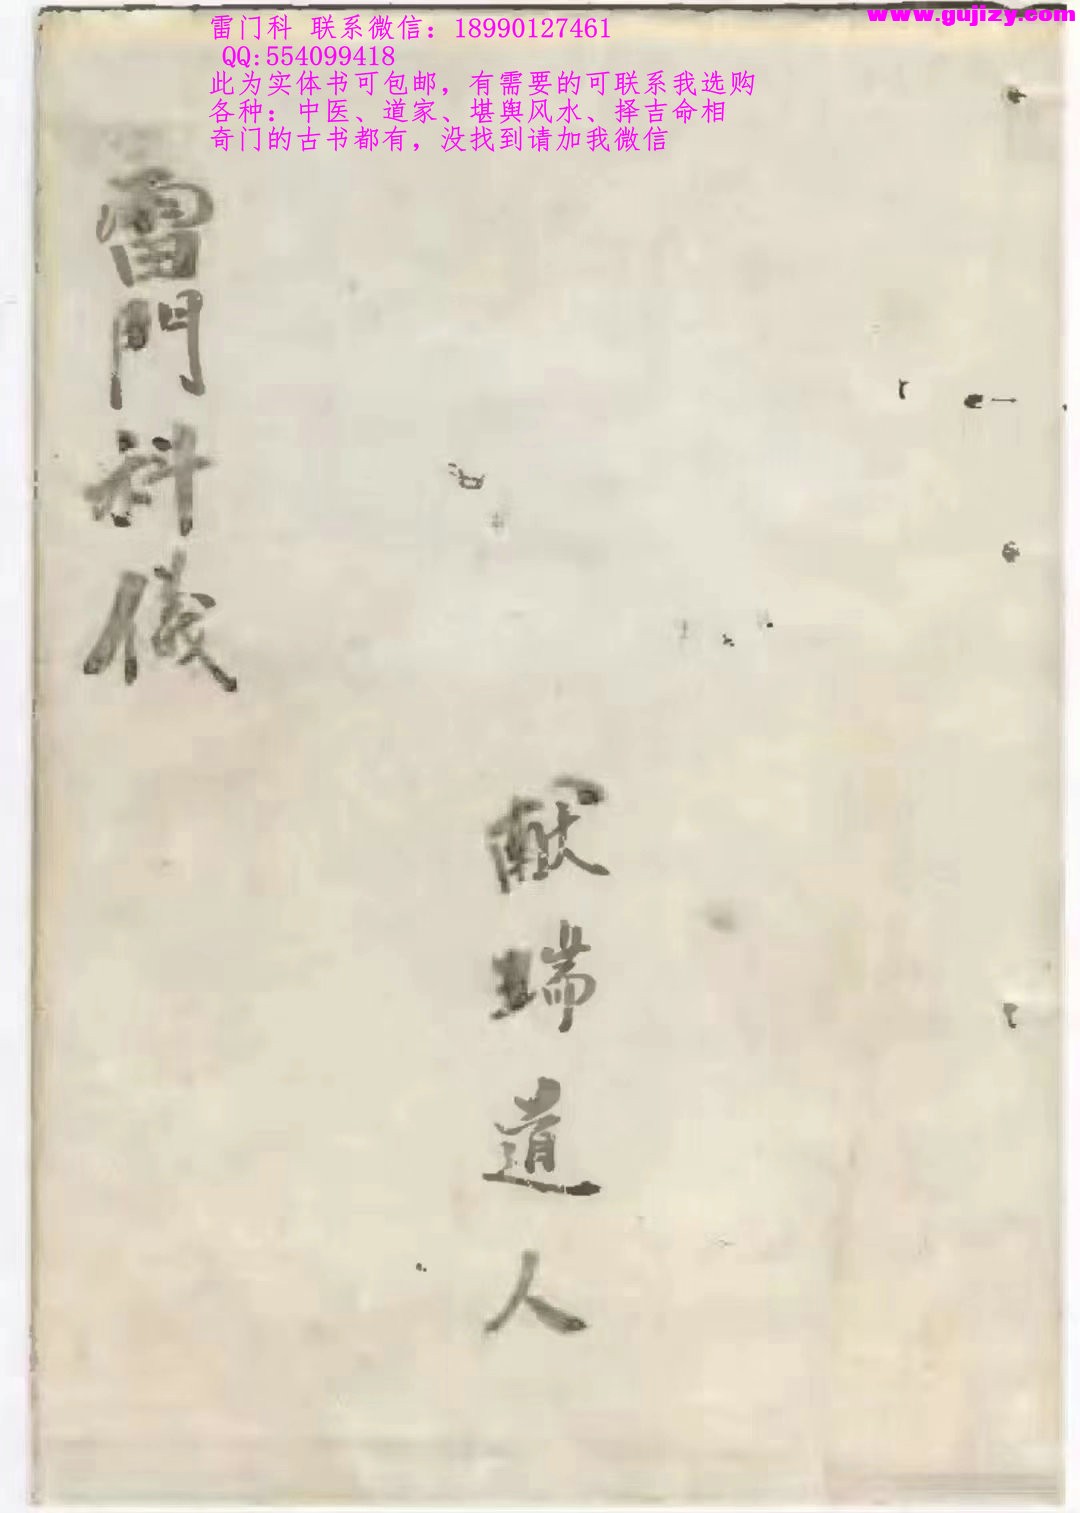 www.gujizy.com
雷门科 联系微信：18990127461
QQ:554099418
此为实体书可包邮，有需要的可联系我选购
各种：中医、道家、堪舆风水、择吉命相
奇门的古书都有，没找到请加我微信
雷門科儀
献瑞道人